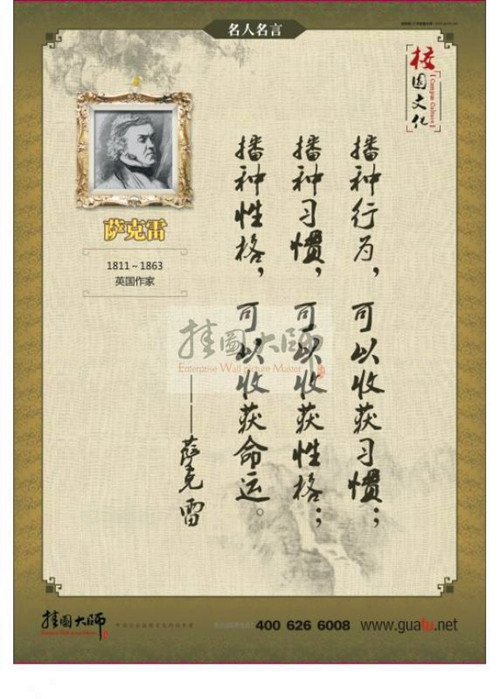 名人名言
校园文化
【Campus Culture】
萨克雷
1811～1863
英国作家
播种行为，可以收获习惯；
播种习惯，可以收获性格；
播种性格，可以收获命运。
——萨克雷
挂图大师
Enterprise Wall picture Master
挂图大师
400 626 6008
www.guatu.net